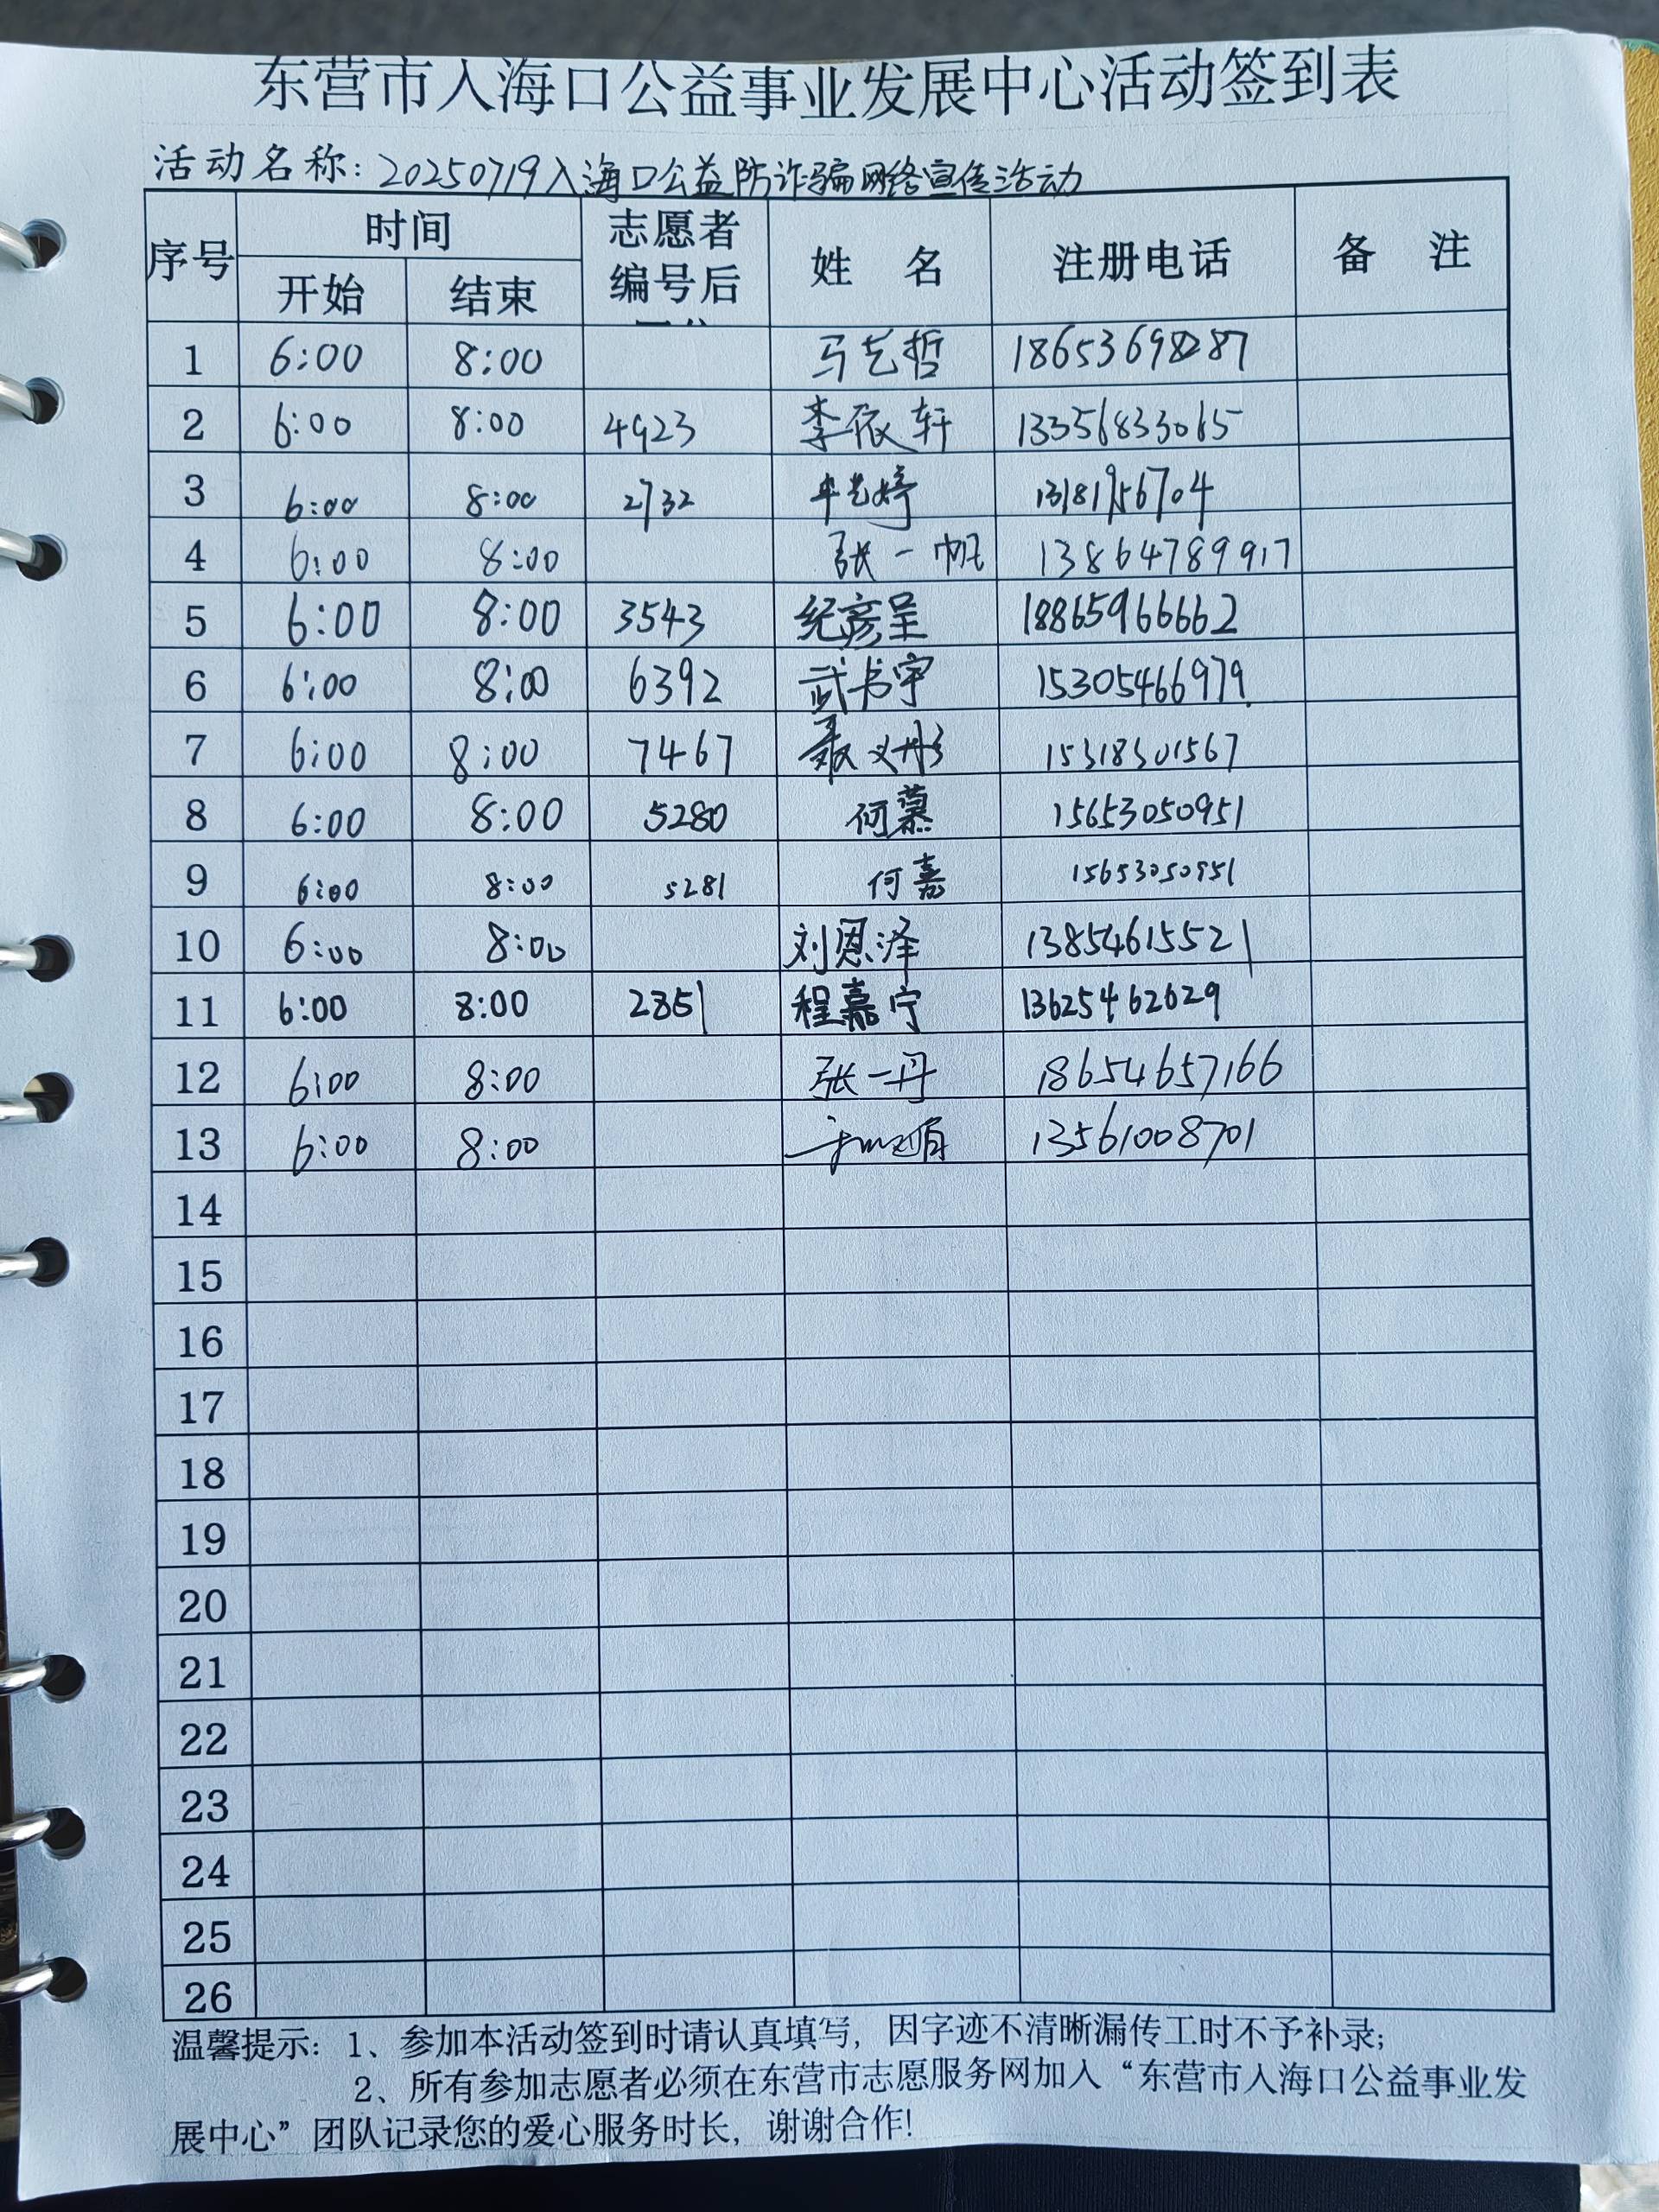 东营市入海口公益事业发展中心活动签到表
活动名称：20250719入海口公益防诈骗网络宣传活动
序号 时间 开始 结束 志愿者编号后 姓 名 注册电话 备 注
1 6:00 8:00 马艺哲 18653698287
2 6:00 8:00 4923 李依轩 13356833065
3 6:00 8:00 2732 13181956704
4 6:00 8:00 张一帆 13864789917
5 6:00 8:00 3543 纪彦呈 18865966662
6 6:00 8:00 6392 武书宇 15305466979
7 6:00 8:00 7467 聂义彤 15318301567
8 6:00 8:00 5280 何慕 15653050951
9 6:00 8:00 5281 何嘉 15653050951
10 6:00 8:00 刘恩泽 13854615521
11 6:00 8:00 2851 程嘉宁 13625462629
12 6:00 8:00 张一丹 18654657166
13 6:00 8:00 13561008701
14
15
16
17
18
19
20
21
22
23
24
25
26
温馨提示：1、参加本活动签到时请认真填写，因字迹不清晰漏传工时不予补录；
2、所有参加志愿者必须在东营市志愿服务网加入“东营市入海口公益事业发
展中心”团队记录您的爱心服务时长，谢谢合作！